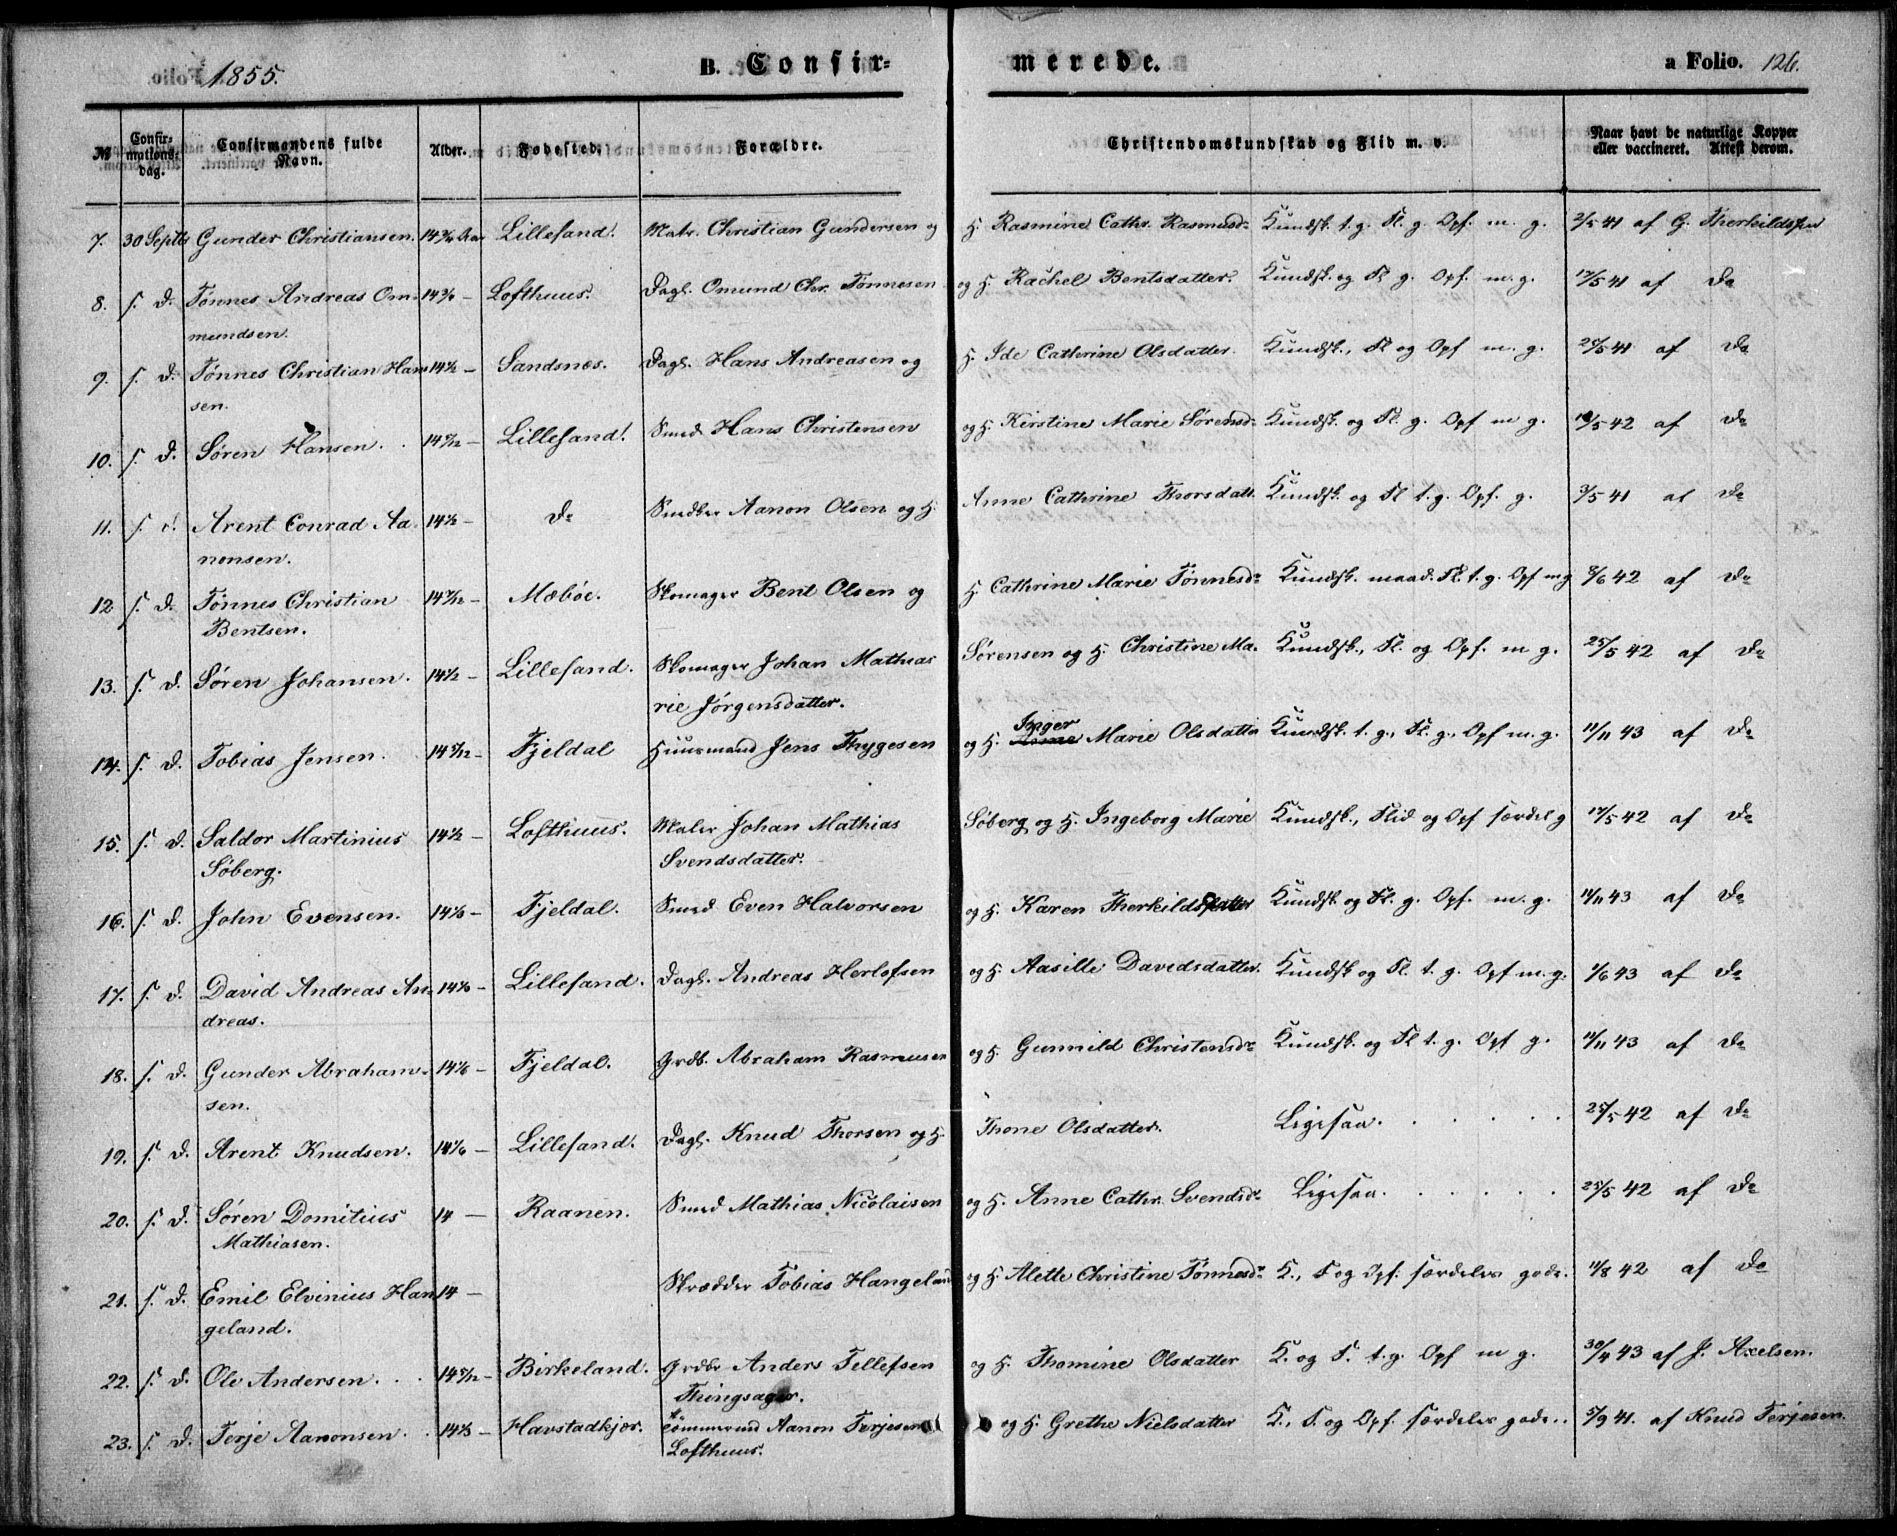 1855.
B. Confirmerede.
a Folio. 126.
№ Confirmations-dag. Confirmandens fulde Navn. Alder. Fødested. Forældre. Christendomskundskab og Flid m. v. Naar havt de naturlige Kopper eller vaccineret. Attest derom.
7. 30 Septbr Gunder Christiansen. 14¾ Aar Lillesand. Matr. Christian Gundersen og H. Rasmine Cathr. Rasmusd. Kundsk. t. g. Fl. g. Opf. m. g. 2/5 41 af G. Therkildsen
8. s. D. Tønnes Andreas Om- 14¾ – Lofthuus. Dagl. Omund Chr. Tønnesen og H. Rachel Bentsdatter. Kundsk. og Fl g. Opf. m. g. 17/5 41 af Do
mundsen.
9. s. D. Tønnes Christian Han- 14½ – Sandsnæs. Dagl. Hans Andreasen og H. Ide Cathrine Olsdatter. Kundsk., Fl og Opf m. g. 20/5 41 af Do
sen.
10. s. D. Søren Hansen. 14 – Lillesand. Smed Hans Christensen og H. Kirstine Marie Sørensd. Kundsk. og Fl. g. Opf m g. 42 af Do
11. s. d. Arent Conrad Aa- 14½ – Do Snedker Aanon Olsen og H. Anne Cathrine Thorsdatt. Kundsk. og Fl t. g. Opf. g. 3/5 41 af Do
nonsen.
12 s. D. Tønnes Christian 14 – Mæbøe. Skomager Bent Olsen og H. Cathrine Marie Tønnesd. Kundsk. maad. Fl. t. g. Opf m g 8/6 42 af Do
Bentsen.
13. s. D. Søren Johansen. 14½ – Lillesand. Skomager Johan Mathias Sørensen og H. Christine Ma- Kundsk., Fl. og Opf. m g. 25/5 42 af Do
rie Jørgensdatter.
14. s. D. Tobias Jensen. 14 – Fjeldal Huusmand Jens Thygesen og H. Anne Inger Marie Olsdatter Kundsk. t. g., Fl. g., Opf m. g. 11/11 43 af Do
15. s. D. Saldor Martinius 14½ – Lofthuus. Maler Johan Mathias Søberg og H. Ingeborg Marie Kundsk., Flid og Opf særdel g 17/5 42 af Do
Søberg. Svendsdatter.
16. s. D. John Evensen. 14 – Fjeldal. Smed Even Halvorsen og H. Karen Therkildsdatter Kundsk og Fl. g. Opf. m. g. 11/11 43 af Do
17. s. D. David Andreas An- 14 – Lillesand. Dagl. Andreas Herlofsen og H. Aasille Davidsdatter. Kundsk og Fl. t. g. Opf m. g. 1/6 43 af Do
dreas.
18. s. D. Gunder Abraham- 14 – Fjeldal. Grdb. Abraham Rasmusen og H. Gunnild Christensdr Kundsk. og Fl t. g. Opf g. 11/11 43 af Do
sen.
19. s. D. Arent Knudsen. 14 – Lillesand. Dagl. Knud Thorsen og H. Thone Olsdatter. Ligesaa. 25/5 42 af Do
20. s. D. Søren Domitius 14 – Raanen. Smed Mathias Nicolaisen og H. Anne Cathr. Svendsdr Ligesaa. 25/5 42 af Do
Mathiasen.
21. s. D. Emil Elvinius Han- 14 – Skrædder Tobias Hangeland og H. Alette Christine Tønnesdr K., F og Opf. særdeles gode. 11/8 42 af Do
geland.
22. s. D. Ole Andersen. 14 – Birkeland. Grdbr Anders Tellefsen og H. Thomine Olsdatter K. og F. t. g. Opf m g. 43 af J. Axelsen.
Thingsager.
23. s. D. Terje Aanonsen. 14 – Havstadkjær. Tømmermd Aanon Terjesen og H. Grethe Nielsdatter K., F. og Opf. særdeles gode. 5/9 41. af Knud Terjesen.
Lofthuus.